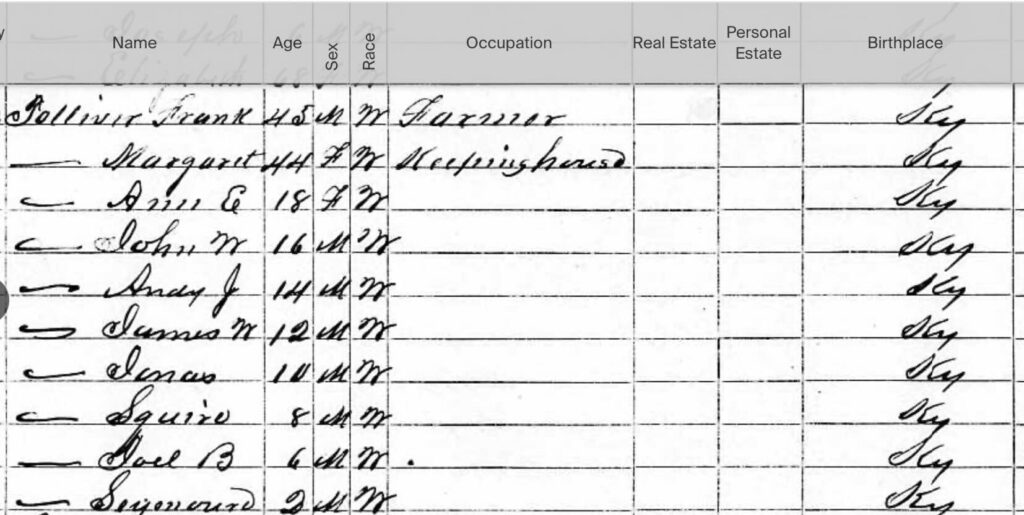 Name Age Sex Race Occupation Real Estate Personal Estate Birthplace
Joseph 6
Elizabeth 68
Tolliver Frank 45 M W Farmer Ky
— Margaret 44 F W Keeping house Ky
— Ann E 18 F W Ky
— John W 16 M W Ky
— Andy J 14 M W Ky
— James W 12 M W Ky
— Jonas 10 M W Ky
— Squire 8 M W Ky
— Joel B 6 M W Ky
— Seymour 2 M W Ky